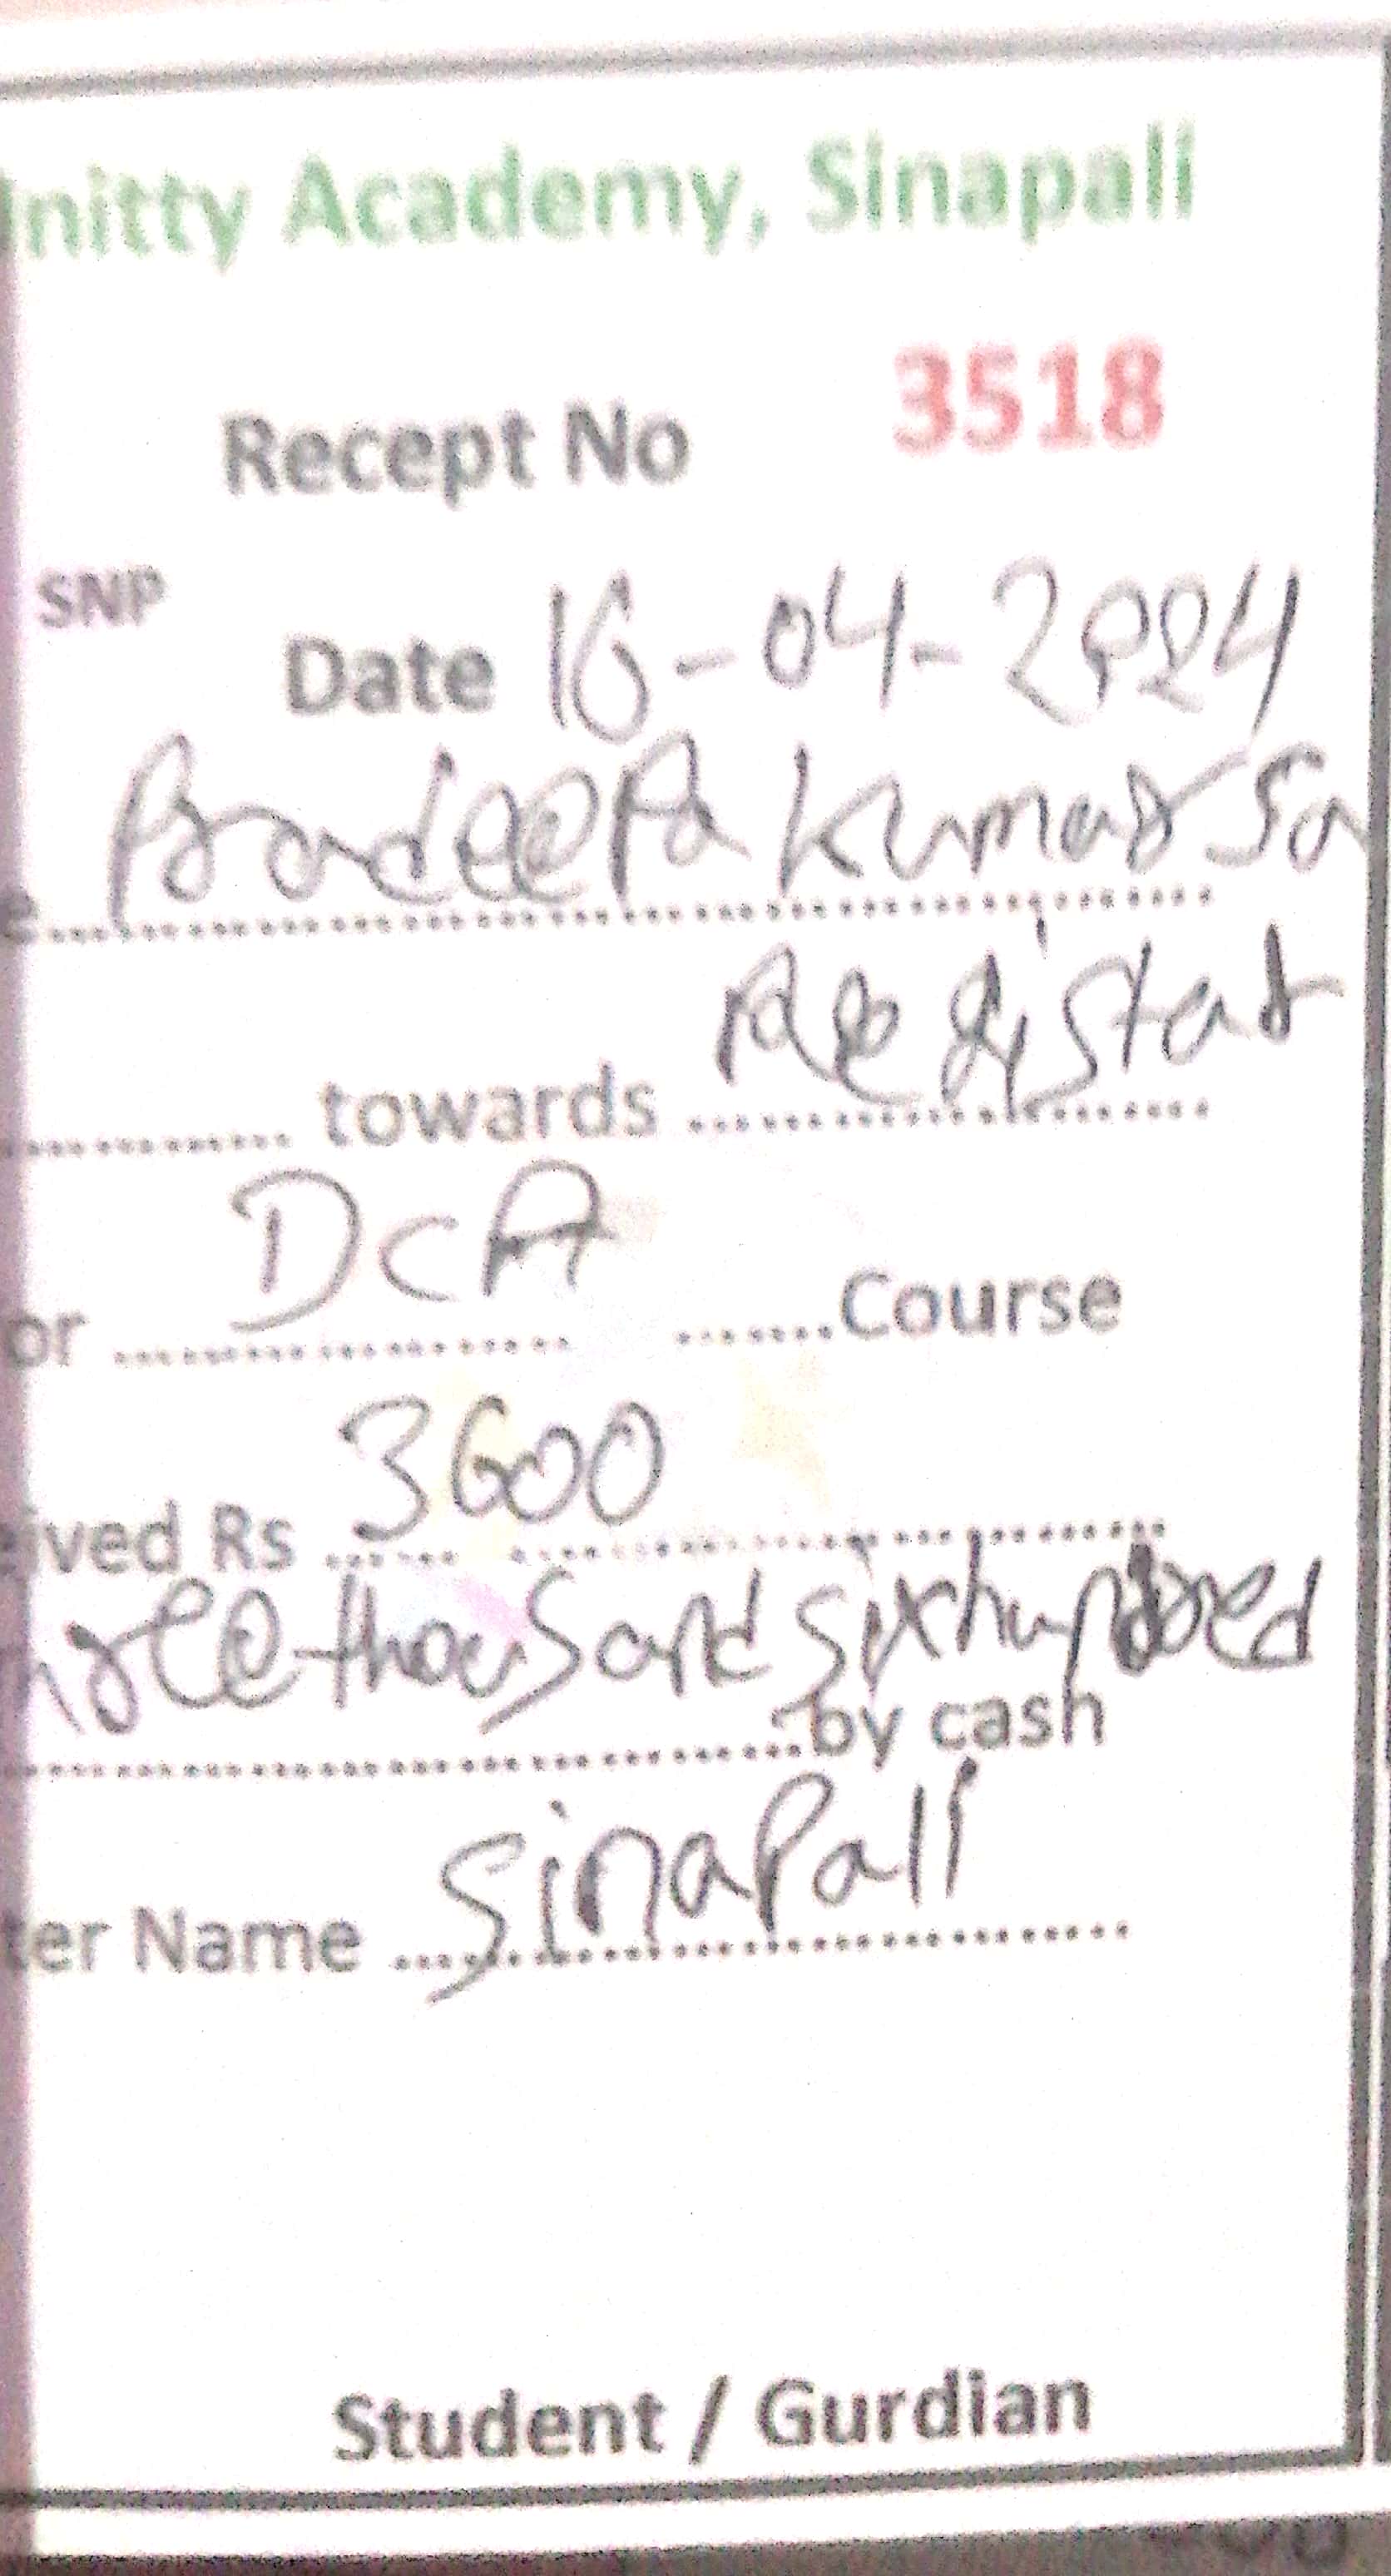 nitty Academy, Sinapali
Recept No 3518
SNP
Date 16-04-2024
e Pradeepa Kumar Sa
towards Registar
or DCA Course
ived Rs 3600
hree thousand Sixhundred
by cash
ter Name Sinapali
Student / Gurdian